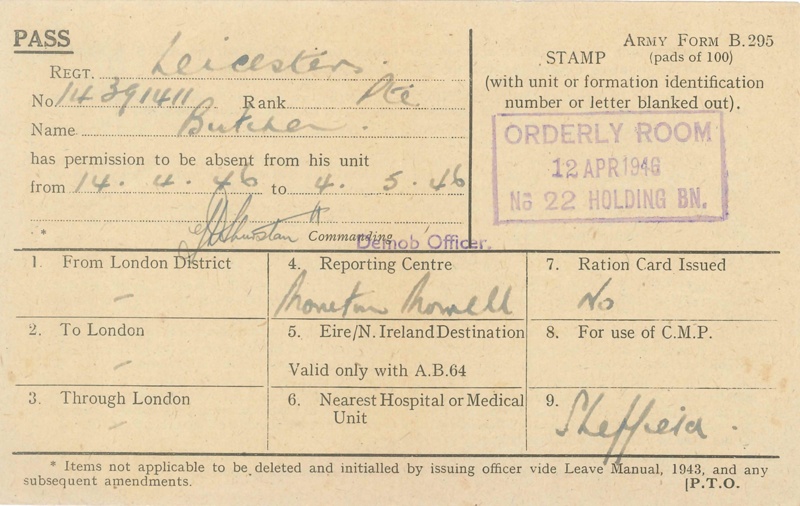 PASS
REGT. Leicesters.
No 14391411 Rank Pte
Name Butcher.
has permission to be absent from his unit
from 14. 4. 46 to 4. 5. 46
* Commanding
Demob Officer.
ARMY FORM B.295
STAMP (pads of 100)
(with unit or formation identification
number or letter blanked out).
ORDERLY ROOM
12 APR 1946
No 22 HOLDING BN.
1. From London District
–
2. To London
–
3. Through London
–
4. Reporting Centre
5. Eire/N. Ireland Destination
Valid only with A.B.64
6. Nearest Hospital or Medical
Unit
7. Ration Card Issued
No
8. For use of C.M.P.
9. Sheffield.
* Items not applicable to be deleted and initialled by issuing officer vide Leave Manual, 1943, and any
subsequent amendments. [P.T.O.